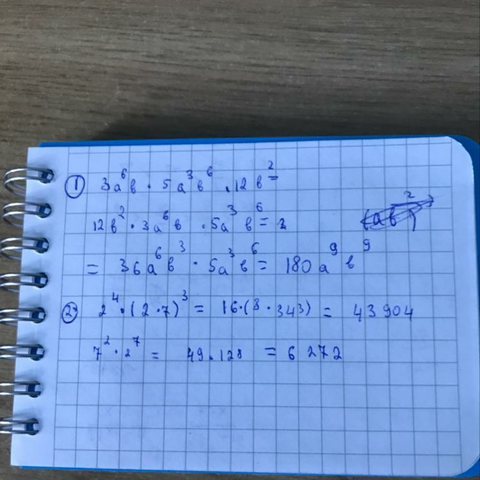 ① 3a⁶b · 5a³b⁶ · 12b²=
12b² · 3a⁶b · 5a³b⁶ =
= 36a⁶b³ · 5a³b⁶ = 180a⁹b⁹
② 2⁴ · (2 · 7)³ = 16 · (8 · 343) = 43904
7² · 2⁷ = 49 · 128 = 6272